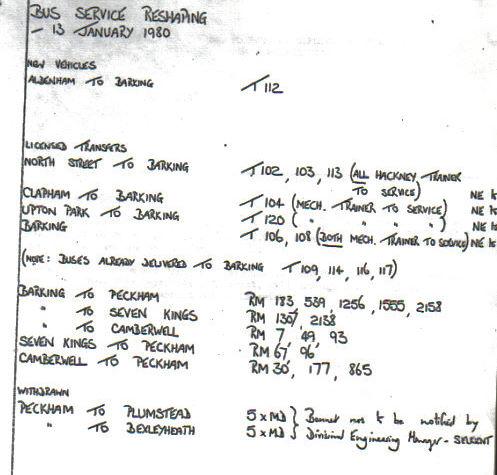 BUS SERVICE RESHAPING
- 13 JANUARY 1980
NEW VEHICLES
ALDENHAM TO BARKING T 112
LICENSED TRANSFERS
NORTH STREET TO BARKING T 102, 103, 113 (ALL HACKNEY. TRAINER
TO SERVICE) NE
CLAPHAM TO BARKING T 104 (MECH. TRAINER TO SERVICE) NE
UPTON PARK TO BARKING T 120 ( " " " " ) NE
BARKING T 106, 108 (BOTH MECH. TRAINER TO SERVICE) NE
(NOTE: BUSES ALREADY DELIVERED TO BARKING T 109, 114, 116, 117)
BARKING TO PECKHAM RM 183, 539, 1256, 1555, 2158
" TO SEVEN KINGS RM 1307, 2138
" TO CAMBERWELL RM 7, 49, 93
SEVEN KINGS TO PECKHAM RM 67, 96
CAMBERWELL TO PECKHAM RM 30, 177, 865
WITHDRAWN
PECKHAM TO PLUMSTEAD 5 x MD } Bonnet nos to be notified by
" TO BEXLEYHEATH 5 x MD } Divisional Engineering Manager - SELKENT